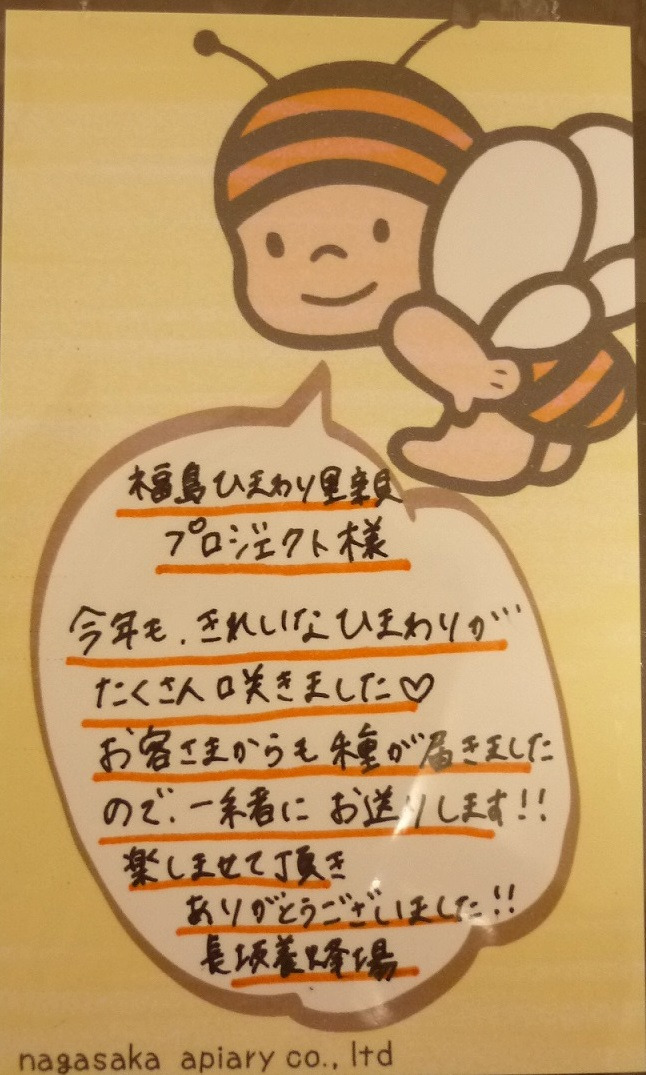 福島ひまわり里親
プロジェクト様
今年も、きれいなひまわりが
たくさん咲きました♡
お客さまからも種が届きました
ので、一緒に お送りします!!
楽しませて頂き
ありがとうございました!!
長坂養蜂場
nagasaka apiary co., ltd